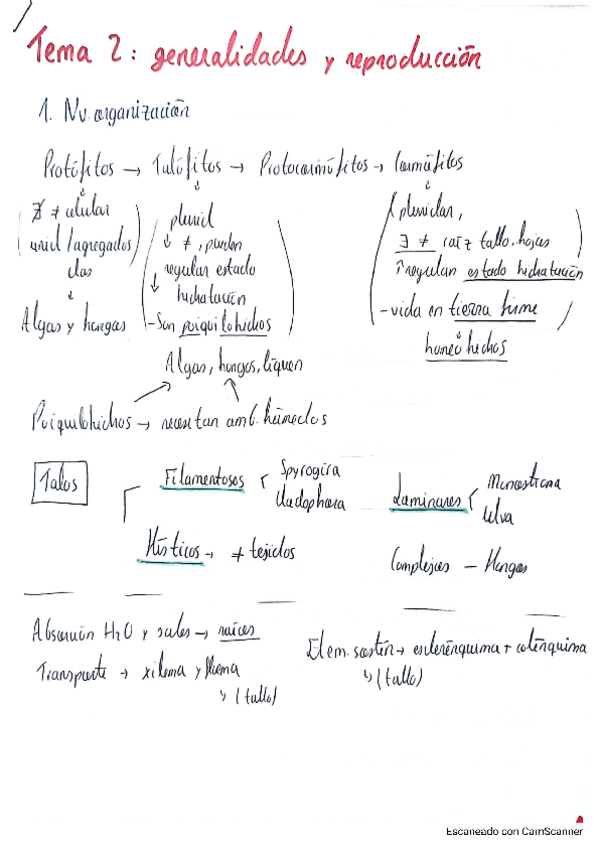 Tema 2: generalidades y reproducción
1. Nv. organización
Protófitos → Talófitos → Protocormófitos → Cormófitos
∄ ≠ celular
unid/agregados
clas
Algas y hongos
plurid
↓ ≠, pueden
regular estado
↓ hidratación
- Son poiquilohidros
Algas, hongos, líquen
pluricelular,
∃ ≠ raíz tallo, hojas
↑ regular estado hidratación
- vida en tierra firme
homeohidros
Poiquilohidros → necesitan amb. húmedos
Talos
Filamentosos
Spyrogira
Cladophora
Laminares
Monostroma
Ulva
Hísticos → ≠ tejidos
Complejos - Hongos
Absorción H2O y sales → raíces
Transporte → xilema y floema
↳ (tallo)
Elem. sostén → esclerénquima + colénquima
↳ (tallo)
Escaneado con CamScanner